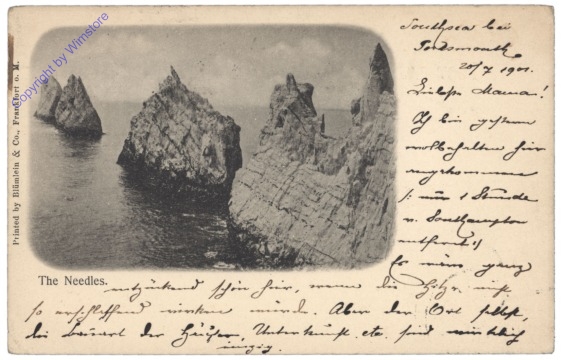 Southsea bei
Portsmouth
20/7 1901.
Liebste Mama!
Ich bin gestern
wohlbehalten hier
angekommen
/: nur 1 Stunde
v. Southampton
entfernt :/
Es wäre ganz
entzückend schön hier, wenn die Hitze nicht
so erschlaffend wirken würde. Aber der Ort selbst,
die Bauart der Häuser, Unterkunft etc. sind wirklich
einzig.
The Needles.
Printed by Blümlein & Co., Frankfort o. M.
Copyright by Wimstore